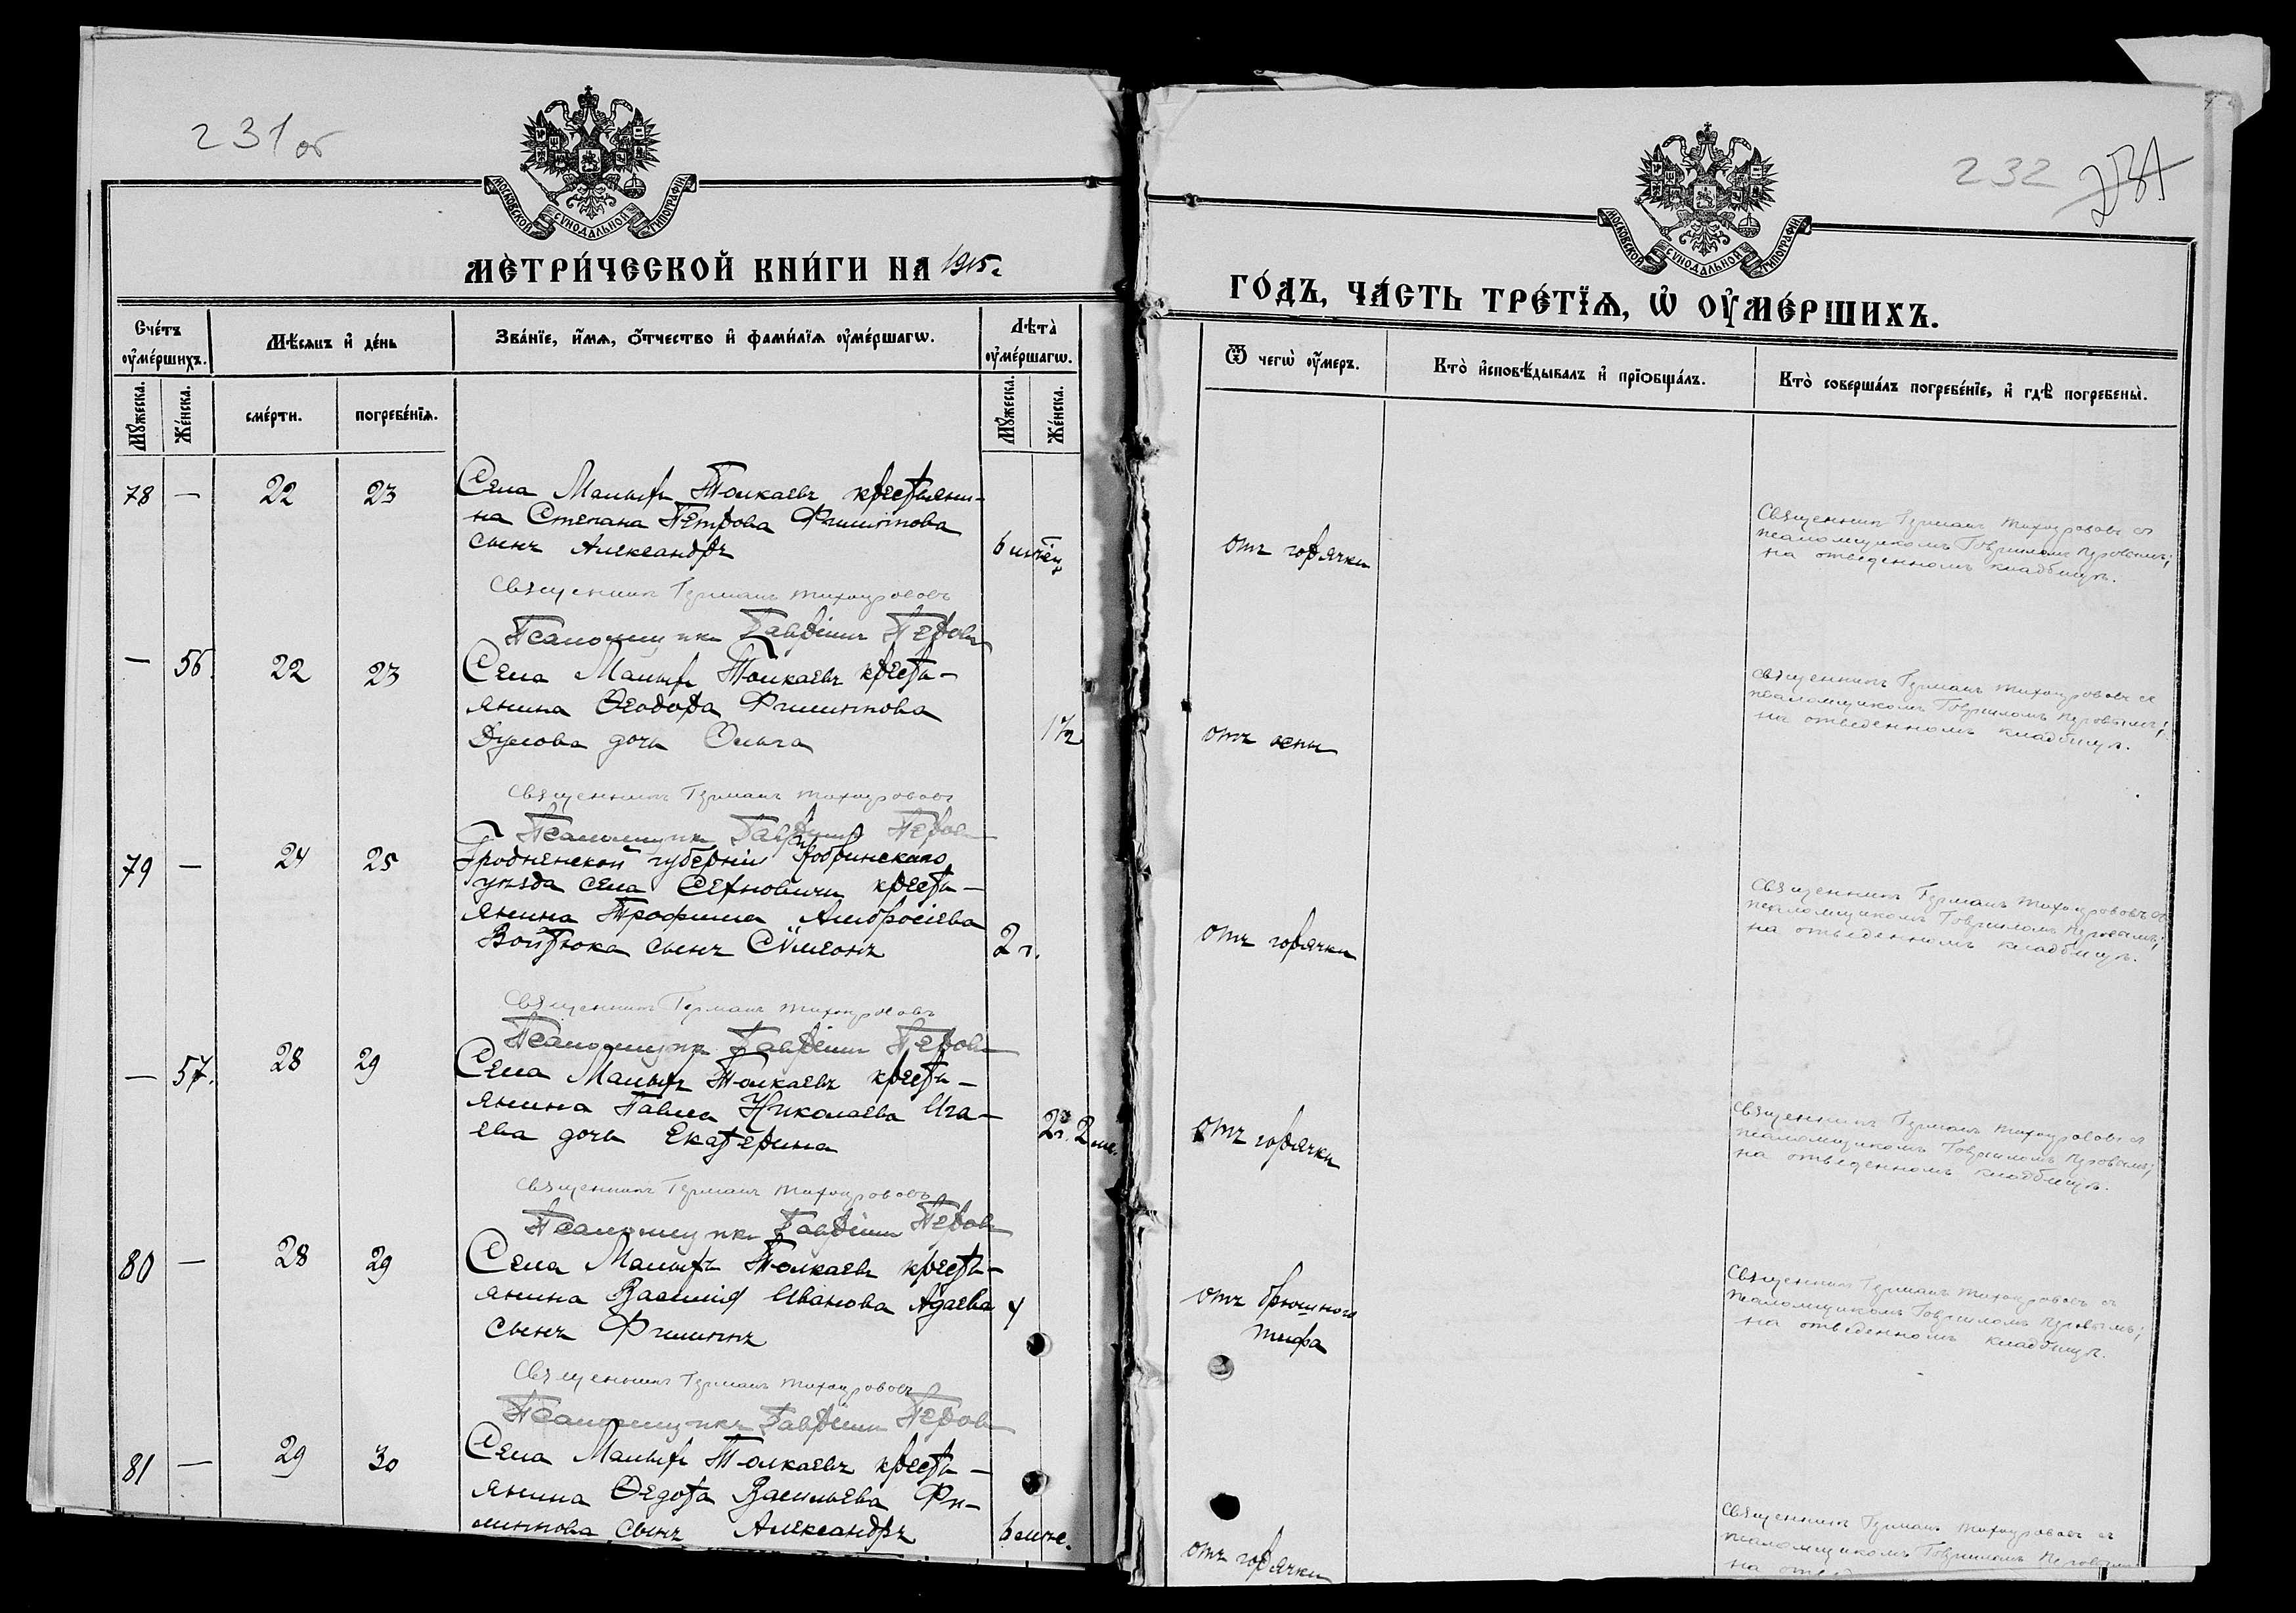 231 об
МОСКОВСКОЙ СѴНОДАЛЬНОЙ ТИПОГРАФІИ
МЕТРИ́ЧЕСКОЙ КНИ́ГИ НА 1915 г.
Сче́тъ ᲂу҆ме́ршихъ.
Мѣ́сяцъ и҆ де́нь
Зва́нїе, и҆́мѧ, ѻ҆́тчество и҆ фами́лїѧ ᲂу҆ме́ршагѡ.
Лѣта̀ ᲂу҆ме́ршагѡ.
Мꙋ́жеска.
Же́нска.
сме́рти.
погребе́нїѧ.
Мꙋ́жеска.
Же́нска.
78 — 22 23
Села Малыхъ Толкаевъ крестьяни-
на Степана Петрова Филиппова
сынъ Александръ
6 мѣсяц.
Священникъ Германъ Тихонравовъ
Псаломщикъ Гавріилъ Перовъ
— 56. 22 23
Села Малыхъ Толкаевъ кресть-
янина Ѳеодора Филиппова
Думова дочь Ольга
1 1/2
Священникъ Германъ Тихонравовъ
Псаломщикъ Гавріилъ Перовъ
79 — 24 25
Гродненской губерніи Кобринскаго
уѣзда села Сехновичи кресть-
янина Трофима Амвросіева
Войтюка сынъ Сѵмеонъ
2 г.
Священникъ Германъ Тихонравовъ
Псаломщикъ Гавріилъ Перовъ
— 57. 28 29
Села Малыхъ Толкаевъ кресть-
янина Павла Николаева Иса-
ева дочь Екатерина
2 г. 2 м.
Священникъ Германъ Тихонравовъ
Псаломщикъ Гавріилъ Перовъ
80 — 28 29
Села Малыхъ Толкаевъ кресть-
янина Василія Иванова Адаева
сынъ Филиппъ
4
Священникъ Германъ Тихонравовъ
Псаломщикъ Гавріилъ Перовъ
81 — 29 30
Села Малыхъ Толкаевъ кресть-
янина Ѳедота Васильева Фи-
липпова сынъ Александръ
6 мѣс.
232 231
МОСКОВСКОЙ СѴНОДАЛЬНОЙ ТИПОГРАФІИ
ГО́ДЪ, ЧА́СТЬ ТРЕ́ТЇѦ, Ѡ҆ ОУ҆МЕ́РШИХЪ.
Ѿ чегѡ̀ ᲂу҆́меръ.
Кто̀ и҆сповѣ́дывалъ и҆ прїѻбща́лъ.
Кто̀ соверша́лъ погребе́нїе, и҆ гдѣ̀ погребены̀.
отъ горячки
Священникъ Германъ Тихонравовъ съ
псаломщикомъ Гавріиломъ Перовымъ;
на отведенномъ кладбищѣ.
отъ оспы
Священникъ Германъ Тихонравовъ съ
псаломщикомъ Гавріиломъ Перовымъ;
на отведенномъ кладбищѣ.
отъ горячки
Священникъ Германъ Тихонравовъ съ
псаломщикомъ Гавріиломъ Перовымъ;
на отведенномъ кладбищѣ.
отъ горячки
Священникъ Германъ Тихонравовъ съ
псаломщикомъ Гавріиломъ Перовымъ;
на отведенномъ кладбищѣ.
отъ брюшного
тифа
Священникъ Германъ Тихонравовъ съ
псаломщикомъ Гавріиломъ Перовымъ;
на отведенномъ кладбищѣ.
отъ горячки
Священникъ Германъ Тихонравовъ съ
псаломщикомъ Гавріиломъ Перовымъ